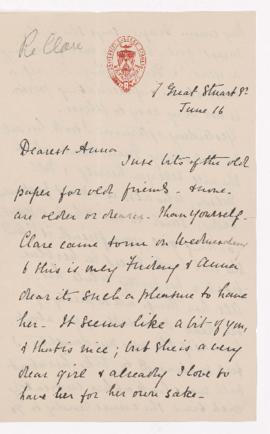 Re Clare
7 Great Stuart St
June 16
Dearest Anna
I use bits of the old
paper for old friends - & none
are older or dearer - than yourself -
Clare came to me on Wednesday
& this is only Friday & Anna
dear it is such a pleasure to have
her - It seems like a bit of you,
& that is nice; but she is a very
dear girl & already I love to
have her for her own sake -